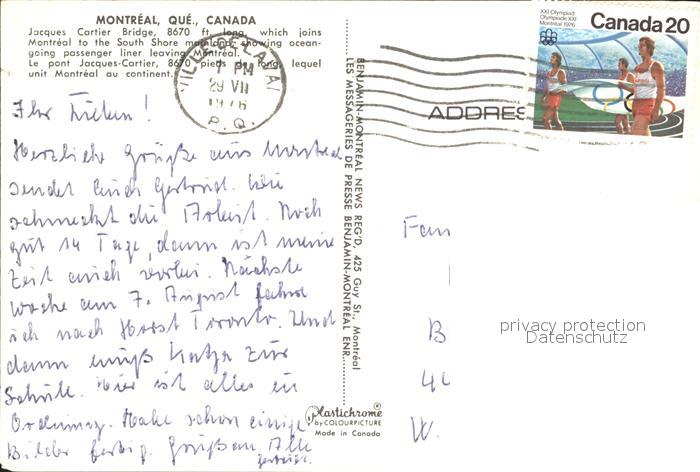 MONTRÉAL, QUÉ., CANADA
Jacques Cartier Bridge, 8670 ft. long, which joins
Montréal to the South Shore mainland, showing ocean-
going passenger liner leaving Montréal.
Le pont Jacques-Cartier, 8670 pieds de long lequel
unit Montréal au continent.
PM
29 VII
1976
P.Q.
XXI Olympiad
Olympiade XXI
Montréal 1976
Canada 20
ADDRES
Ihr Lieben!
Herzliche Grüße aus Montreal
sendet Euch Gertrud. Wie
schmeckt die Arbeit. Noch
gut 14 Tage, dann ist meine
Zeit auch vorbei. Nächste
Woche am 7. August fahre
ich nach Toronto. Und
dann muß Katja zur
Schule. Hier ist alles in
Ordnung. Habe schon einige
Bilder fertig. Grüße an Alle
Gertrud.
BENJAMIN-MONTRÉAL NEWS REG'D, 425 Guy St., Montréal
LES MESSAGERIES DE PRESSE BENJAMIN-MONTRÉAL ENR.
Plastichrome
by COLOURPICTURE
Made in Canada
Fam
B
W.
privacy protection
Datenschutz